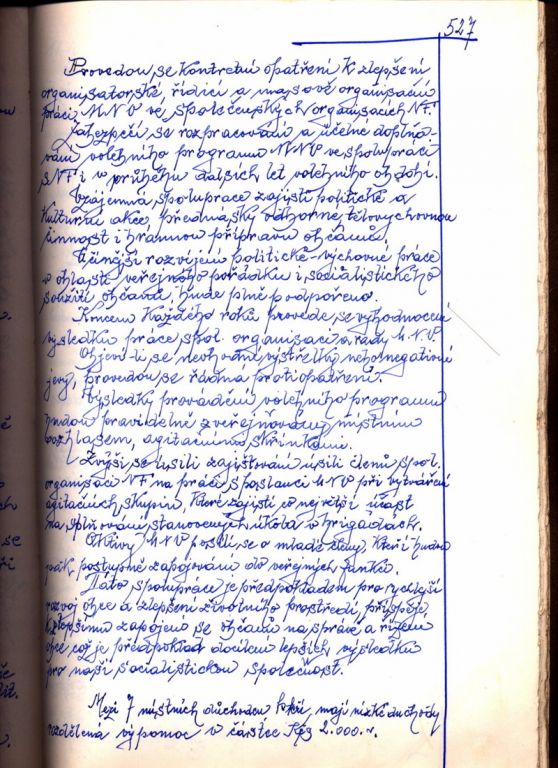 527
Provedou se konkretní opatření k zlepšení
organisatorské, řídící a masově organisační
práci MNV ve společenských organisacích NF.
Zabezpečí se rozpracování a účelné doplňo-
vání volebního programu MNV ve spolupráci
s NF i v průběhu dalších let volebního období.
Vzájemná spolupráce zajistí politické a
kulturní akce, přednášky odborné, tělovýchovnou
činnost i brannou přípravu občanů.
Účinější rozvíjení politicko-výchovné práce
v oblasti veřejného pořádku i socialistického
soužití občanů bude plně podpořeno.
Koncem každého roku provede se vyhodnocení
výsledků práce spol. organisací a rady MNV.
Objeví-li se nevhodné výstřelky nebo negativní
jevy, provedou se řádná protiopatření.
Výsledky provádění volebního programu
budou pravidelně zveřejňovány místním
rozhlasem, agitačními skřínkami.
Zvýší se úsilí zajišťování úsilí členů spol.
organisací NF na práci s poslanci MNV při vytváření
agitačních skupin, které zajistí co největší účast
na splňování stanovených úkolů v brigádách.
Aktivy MNV posílí se o mladé členy, kteří budou
pak postupně zapojováni do veřejných funkcí.
Táto spolupráce je předpokladem pro rychlejší
rozvoj obce a zlepšení životního prostředí, přispěje
k lepšímu zapojení se občanů na správě a řízení
obce což je předpoklad docílení lepších výsledků
pro naši socialistickou společnost.
Mezi 7 místních důchodců kteří mají nízké důchody
rozdělená výpomoc v částce Kčs 2.000.-.